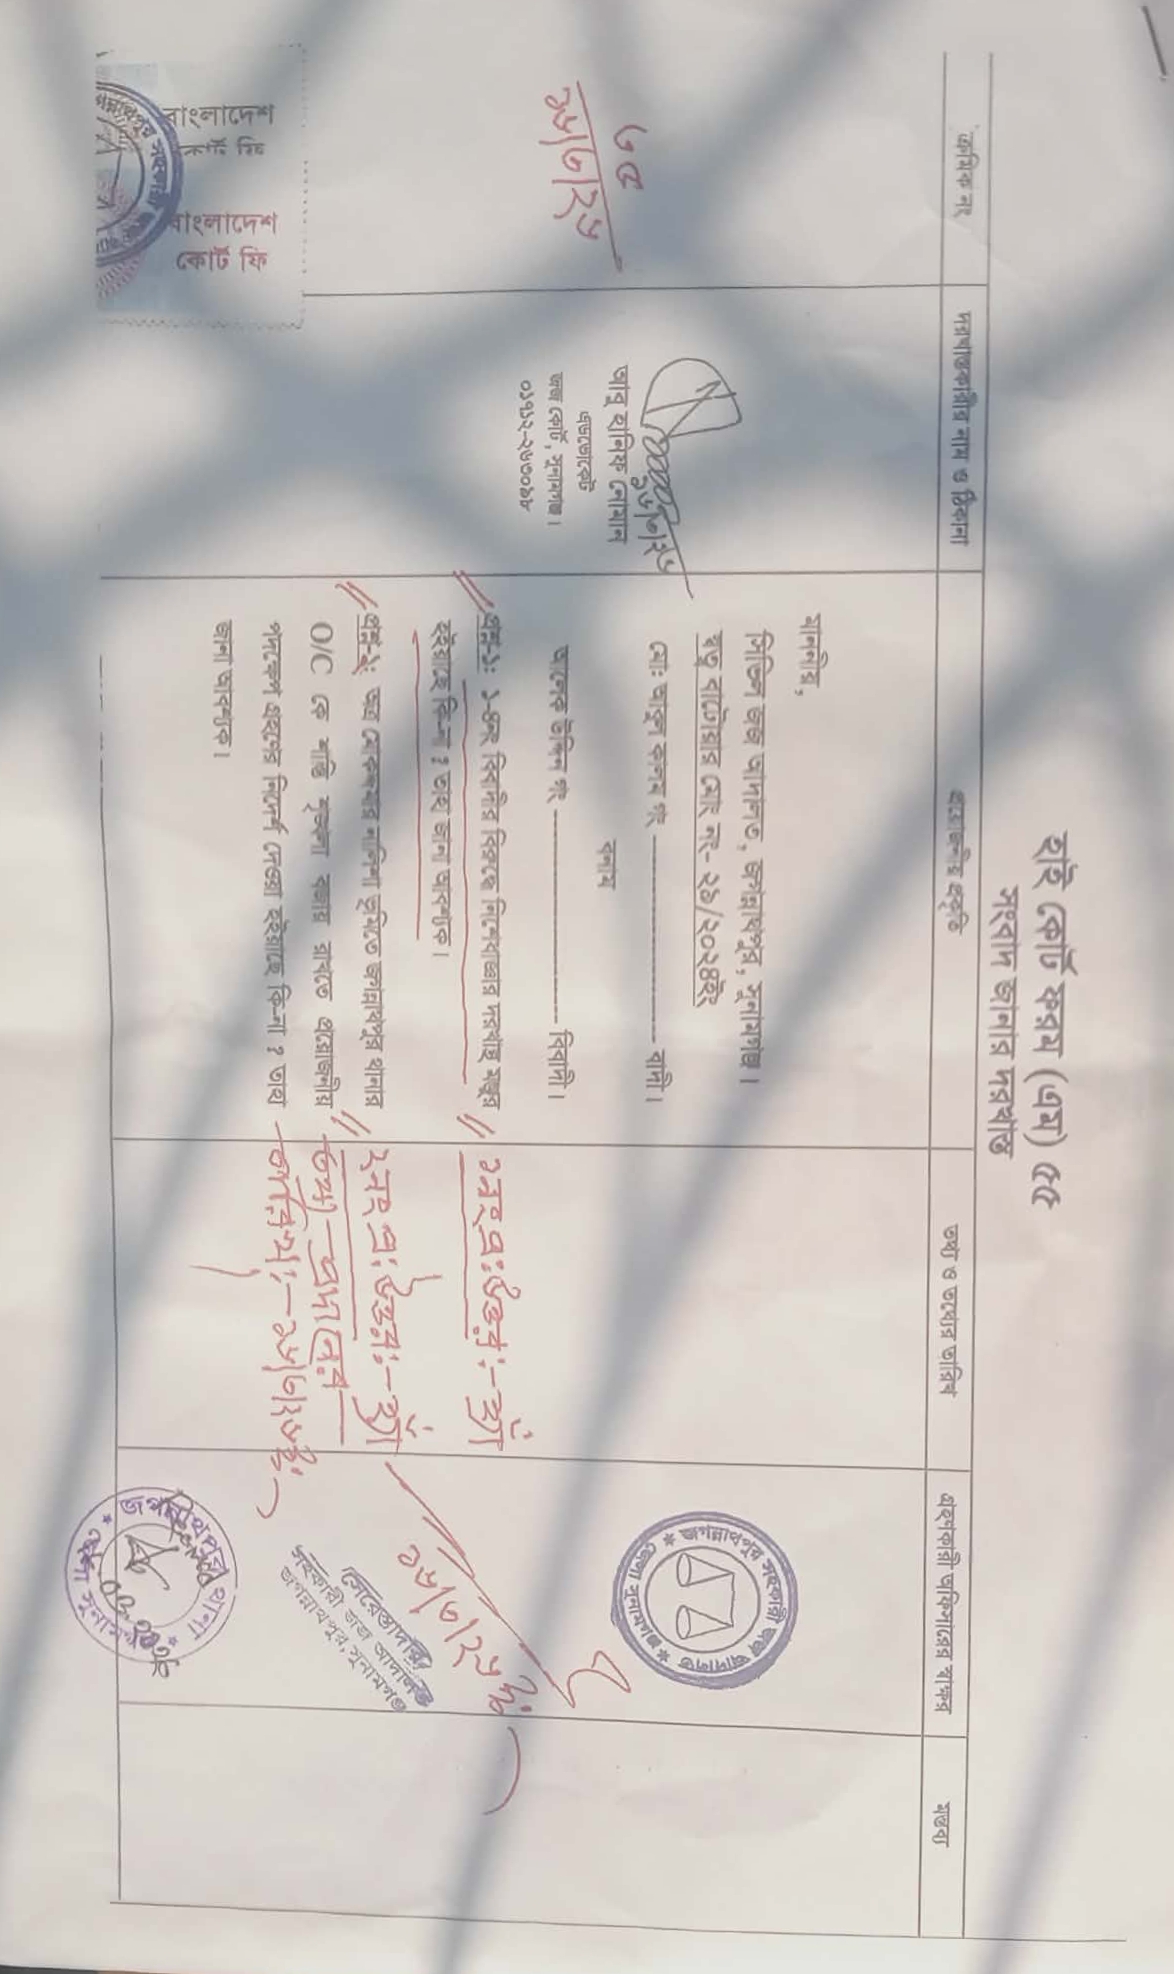 হাই কোর্ট ফরম (এম) ৫৫
সংবাদ জানার দরখাস্ত
ক্রমিক নং
দরখাস্তকারীর নাম ও ঠিকানা
প্রয়োজনীয় প্রকৃতি
তথ্য ও তথ্যের তারিখ
গ্রহণকারী অফিসারের স্বাক্ষর
মন্তব্য
৩৫
১৬/৩/২৬
বাংলাদেশ
কোর্ট ফি
বাংলাদেশ
কোর্ট ফি
১৬/৩/২৬
আবু হানিফ নোমান
এডভোকেট
জজ কোর্ট, সুনামগঞ্জ।
মাননীয়,
সিভিল জজ আদালত, জগন্নাথপুর, সুনামগঞ্জ।
স্বত্ব বাটোয়ারা মোং নং- ২৯/২০২৪ইং
মোঃ আবুল কালাম গং ---------------------- বাদী।
বনাম
আলেক উদ্দিন গং ---------------------- বিবাদী।
প্রশ্ন-১ঃ ১-৪নং বিবাদীর বিরুদ্ধে নিষেধাজ্ঞার দরখাস্ত মঞ্জুর
হইয়াছে কি-না ? তাহা জানা আবশ্যক।
প্রশ্ন-২ঃ অত্র মোকদ্দমার নালিশা ভূমিতে জগন্নাথপুর থানার
O/C কে শান্তি শৃঙ্খলা বজায় রাখতে প্রয়োজনীয়
পদক্ষেপ গ্রহণের নির্দেশ দেওয়া হইয়াছে কি-না ? তাহা
জানা আবশ্যক।
১নং প্রঃ উত্তর :- হ্যাঁ
২নং প্রঃ উত্তর :- হ্যাঁ
তথ্য প্রদানের
তারিখ :- ১৬/৩/২৬ইং
জগন্নাথপুর সহকারী জজ আদালত
জেলা সুনামগঞ্জ
১৬/৩/২৬ ইং
সেরেস্তাদার
সহকারী জজ আদালত
জগন্নাথপুর, সুনামগঞ্জ
জগন্নাথপুর থানা
জেলা সুনামগঞ্জ